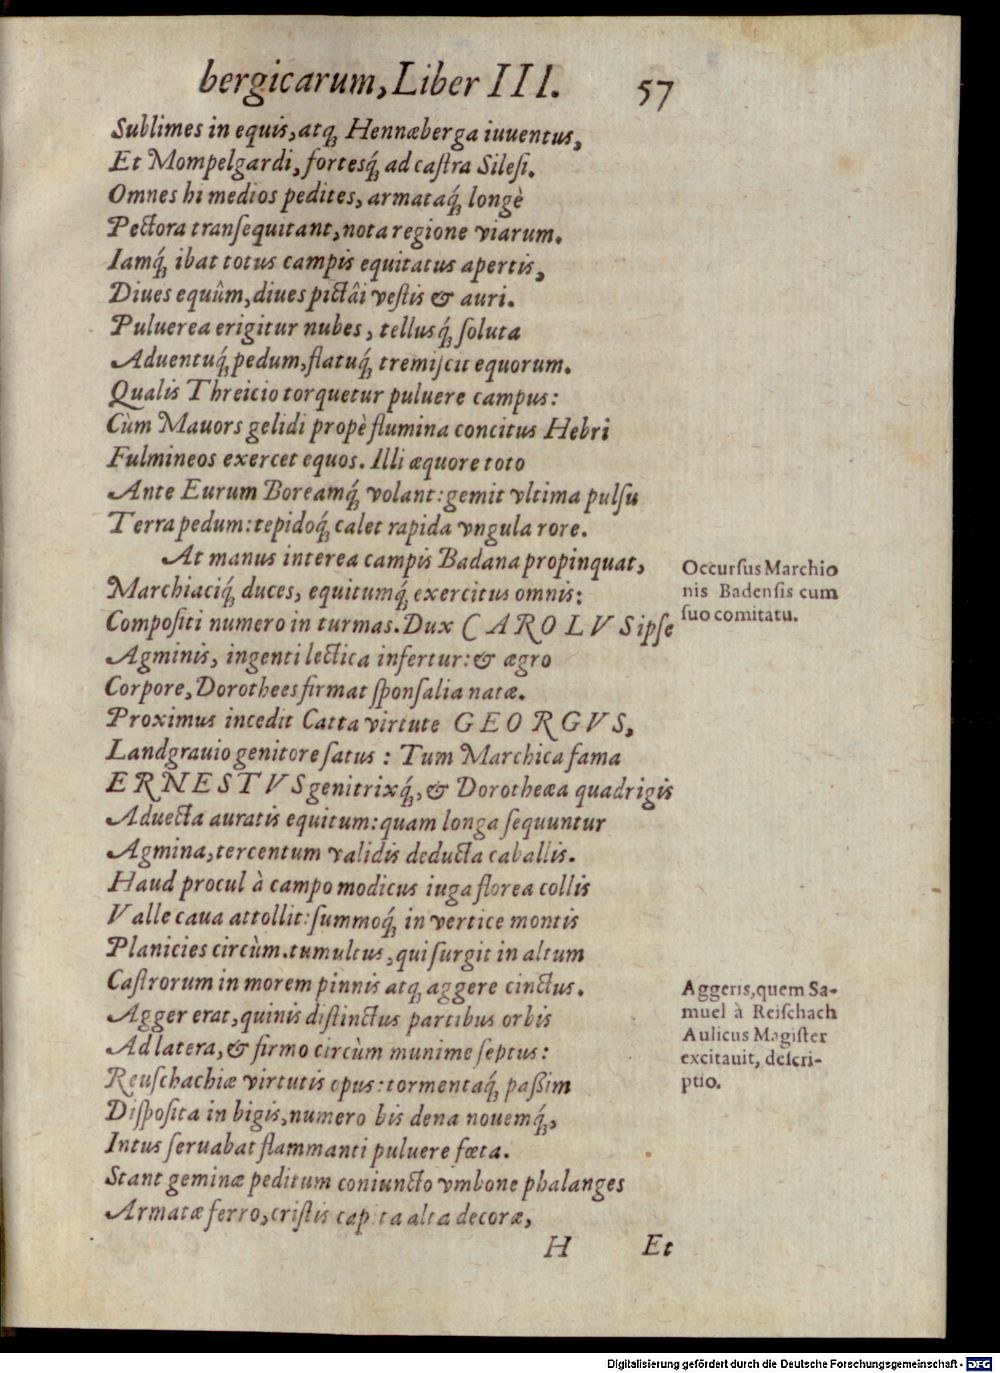 bergicarum, Liber III. 57
Sublimes in equis, atq́; Hennæberga iuuentus,
Et Mompelgardi, fortesq́; ad castra Silesi.
Omnes hi medios pedites, armataq́; longè
Pectora transequitant, nota regione viarum.
Iamq́; ibat totus campis equitatus apertis,
Diues equûm, diues pictâi vestis & auri.
Puluerea erigitur nubes, tellusq́; soluta
Aduentuq́; pedum, flatuq́; tremiscit equorum.
Qualis Threicio torquetur puluere campus:
Cùm Mauors gelidi propè flumina concitus Hebri
Fulmineos exercet equos. Illi æquore toto
Ante Eurum Boreamq́; volant: gemit vltima pulsu
Terra pedum: tepidoq́; calet rapida vngula rore.
At manus interea campis Badana propinquat,
Marchiaciq́; duces, equitumq́; exercitus omnis:
Compositi numero in turmas. Dux CAROLVS ipse
Agminis, ingenti lectica infertur: & ægro
Corpore, Dorothees firmat sponsalia natæ.
Proximus incedit Catta virtute GEORGVS,
Landgrauio genitore satus: Tum Marchica fama
ERNESTVS genitrixq́;, & Dorotheæa quadrigis
Aduecta auratis equitum: quam longa sequuntur
Agmina, tercentum validis deducta caballis.
Haud procul à campo modicus iuga florea collis
Valle caua attollit: summoq́; in vertice montis
Planicies circùm. tumultus, qui surgit in altum
Castrorum in morem pinnis atq; aggere cinctus.
Agger erat, quinis distinctus partibus orbis
Ad latera, & firmo circùm munime septus:
Reuschachiæ virtutis opus: tormentaq́; paßim
Disposita in bigis, numero bis dena nouemq́;,
Intus seruabat flammanti puluere fœta.
Stant geminæ peditum coniuncto vmbone phalanges
Armatæ ferro, cristis capita alta decoræ,
H Et
Occursus Marchio
nis Badensis cum
suo comitatu.
Aggeris, quem Sa-
muel à Reischach
Aulicus Magister
excitauit, descri-
ptio.
Digitalisierung gefördert durch die Deutsche Forschungsgemeinschaft - DFG